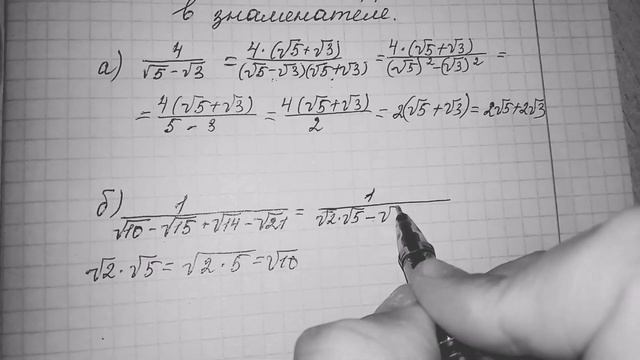 в знаменателе.
а) 4/(√5-√3) = 4·(√5+√3)/((√5-√3)(√5+√3)) = 4·(√5+√3)/((√5)²-(√3)²) =
= 4(√5+√3)/(5-3) = 4(√5+√3)/2 = 2(√5+√3) = 2√5+2√3
б) 1/(√10-√15+√14-√21) = 1/(√2·√5-√
√2·√5 = √(2·5) = √10